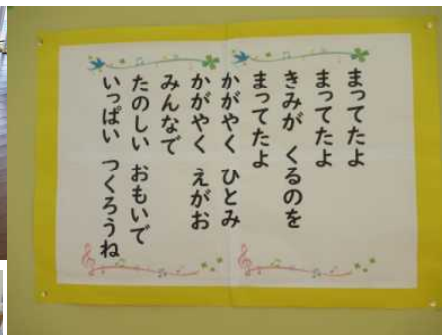 まってたよ
まってたよ
きみが くるのを
まってたよ
かがやく ひとみ
かがやく えがお
みんなで
たのしい おもいで
いっぱい つくろうね